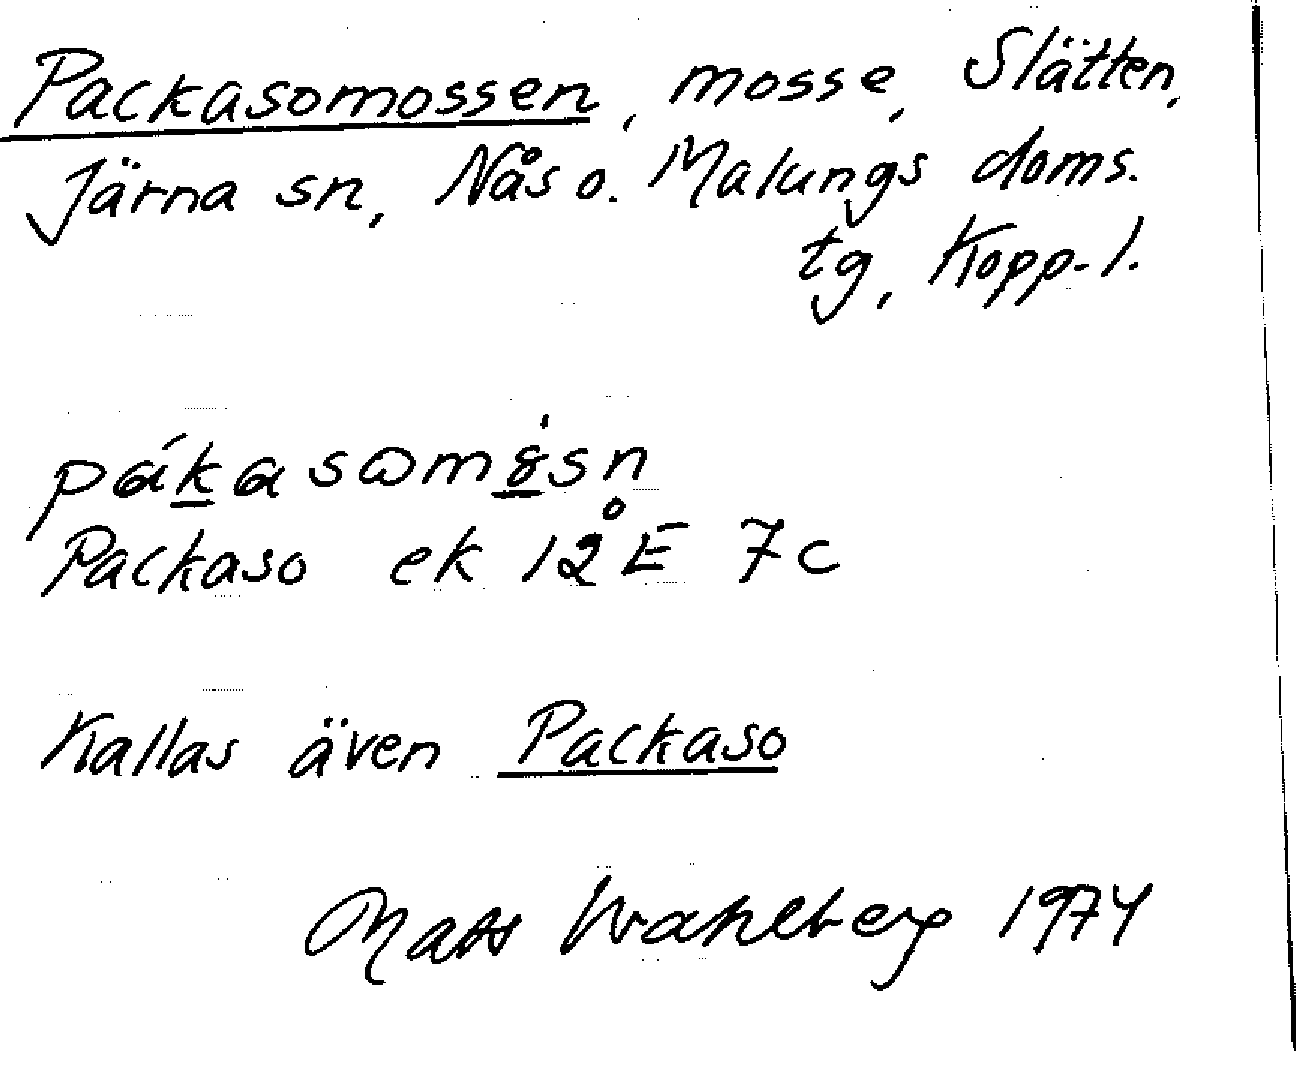 Packasomossen, mosse, Slätten,
Järna sn, Nås o. Malungs doms.
tg, Kopp. l.
Packaso ek 12E 7c
Kallas även Packaso
Mats Wahlberg 1974